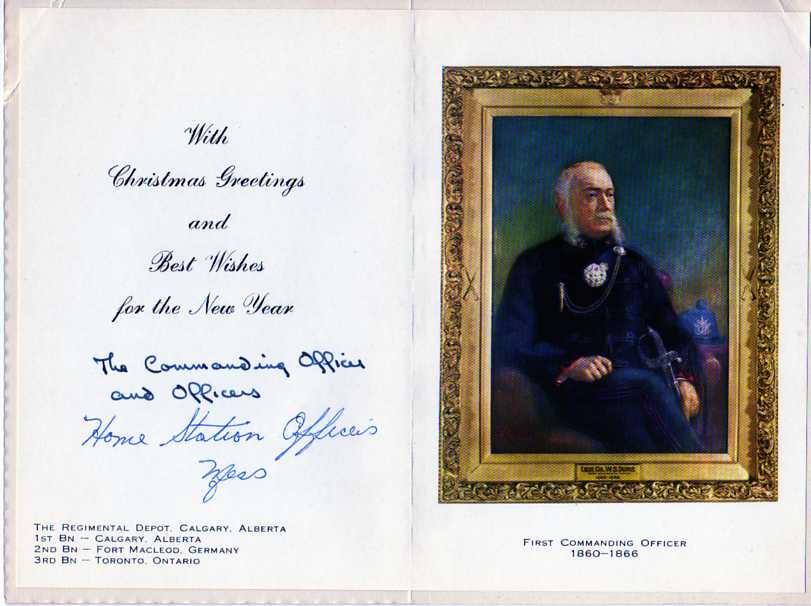 With
Christmas Greetings
and
Best Wishes
for the New Year
The Commanding Officer
and Officers
Home Station Officers
Mess
THE REGIMENTAL DEPOT, CALGARY, ALBERTA
1ST BN – CALGARY, ALBERTA
2ND BN – FORT MACLEOD, GERMANY
3RD BN – TORONTO, ONTARIO
LIEUT. COL. W.S. DURIE
FIRST COMMANDING OFFICER
1860–1866